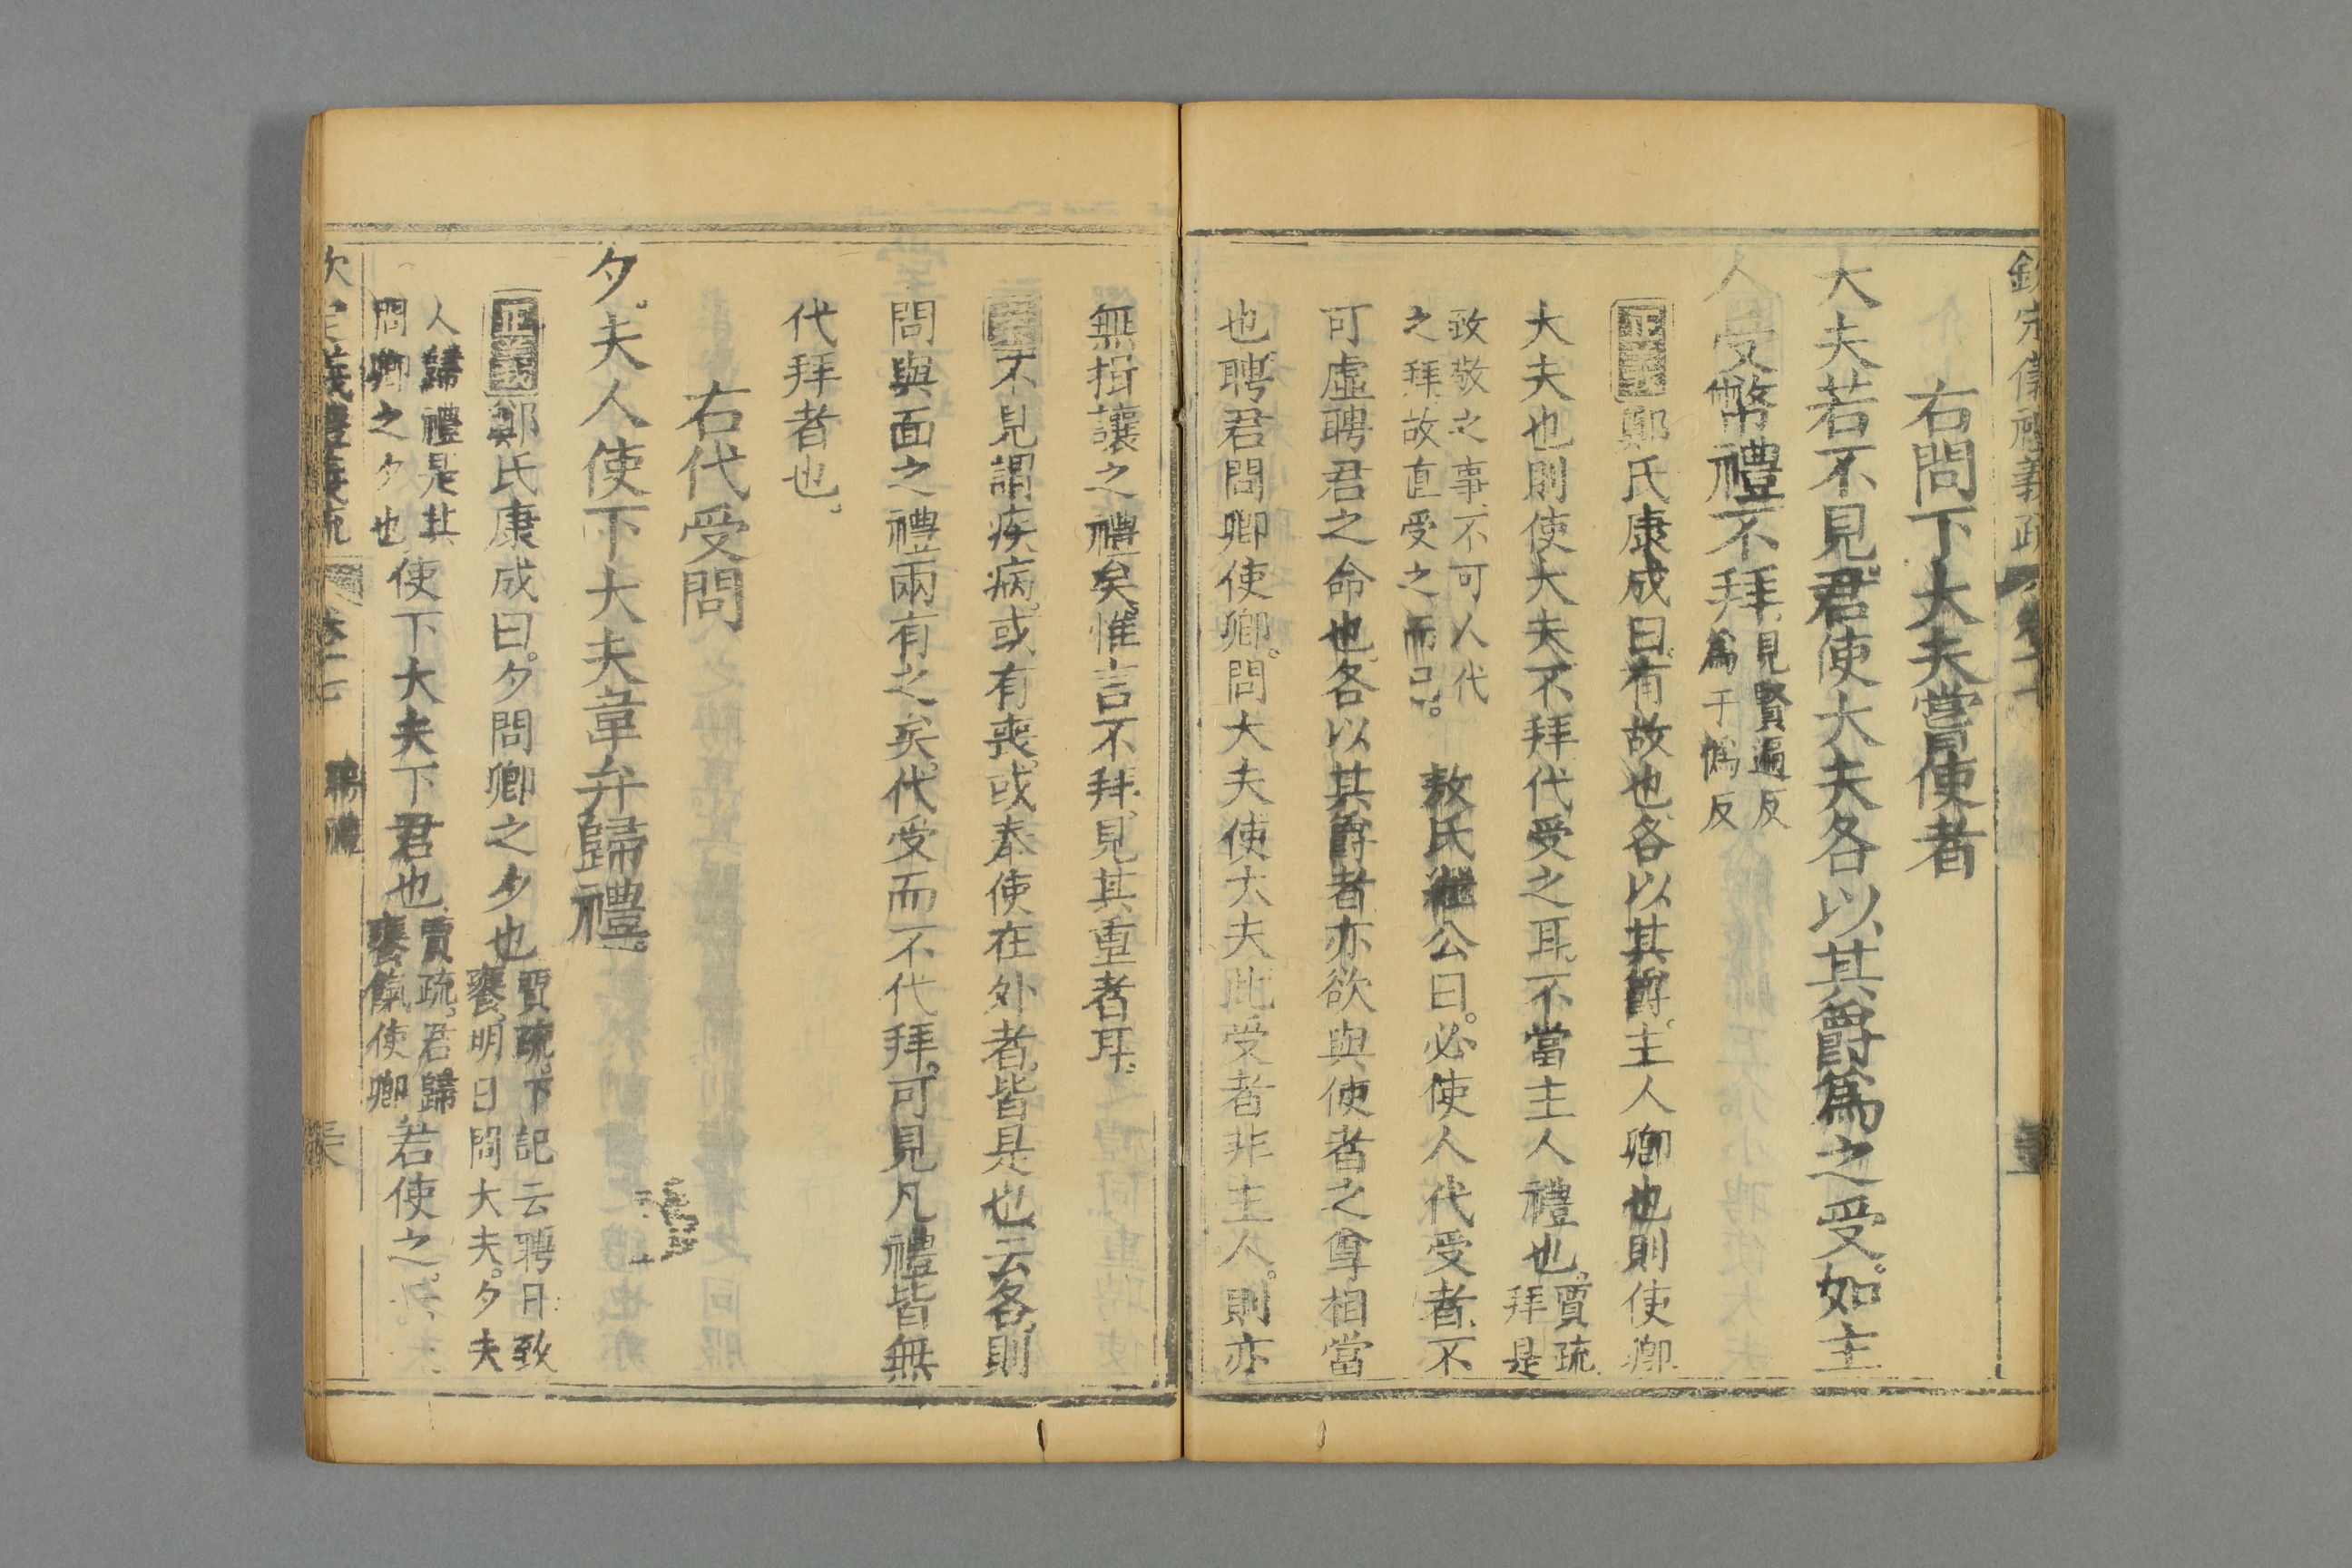 欽定儀禮義疏 卷十七
右問下大夫嘗使者
大夫若不見君使大夫各以其爵爲之受。如主
人受幣禮不拜 見賢遍反 爲于僞反
正義 鄭氏康成曰。有故也。各以其爵。主人卿也則使卿
大夫也則使大夫不拜代受之耳。不當主人禮也。賈疏 拜是
致敬之事。不可人代 之拜故直受之而已。 敖氏繼公曰。必使人代受者。不
可虛聘君之命也。各以其爵者亦欲與使者之尊相當
也。聘君問卿使卿。問大夫使大夫此受者非主人。則亦
無揖讓之禮矣。惟言不拜。見其重者耳。
不見謂疾病。或有喪。或奉使在外者。皆是也。云各。則
問與面之禮兩有之矣。代受而不代拜。可見凡禮皆無
代拜者也。
右代受問
夕。夫人使下大夫韋弁歸禮。
正義 鄭氏康成曰。夕問卿之夕也 賈疏。下記云聘日致 饔。明日問大夫。夕夫
人歸禮是其 問卿之夕也 使下大夫下君也。 賈疏。君歸 饔餼使卿 若使之。
欽定義禮義疏 卷十七 聘禮